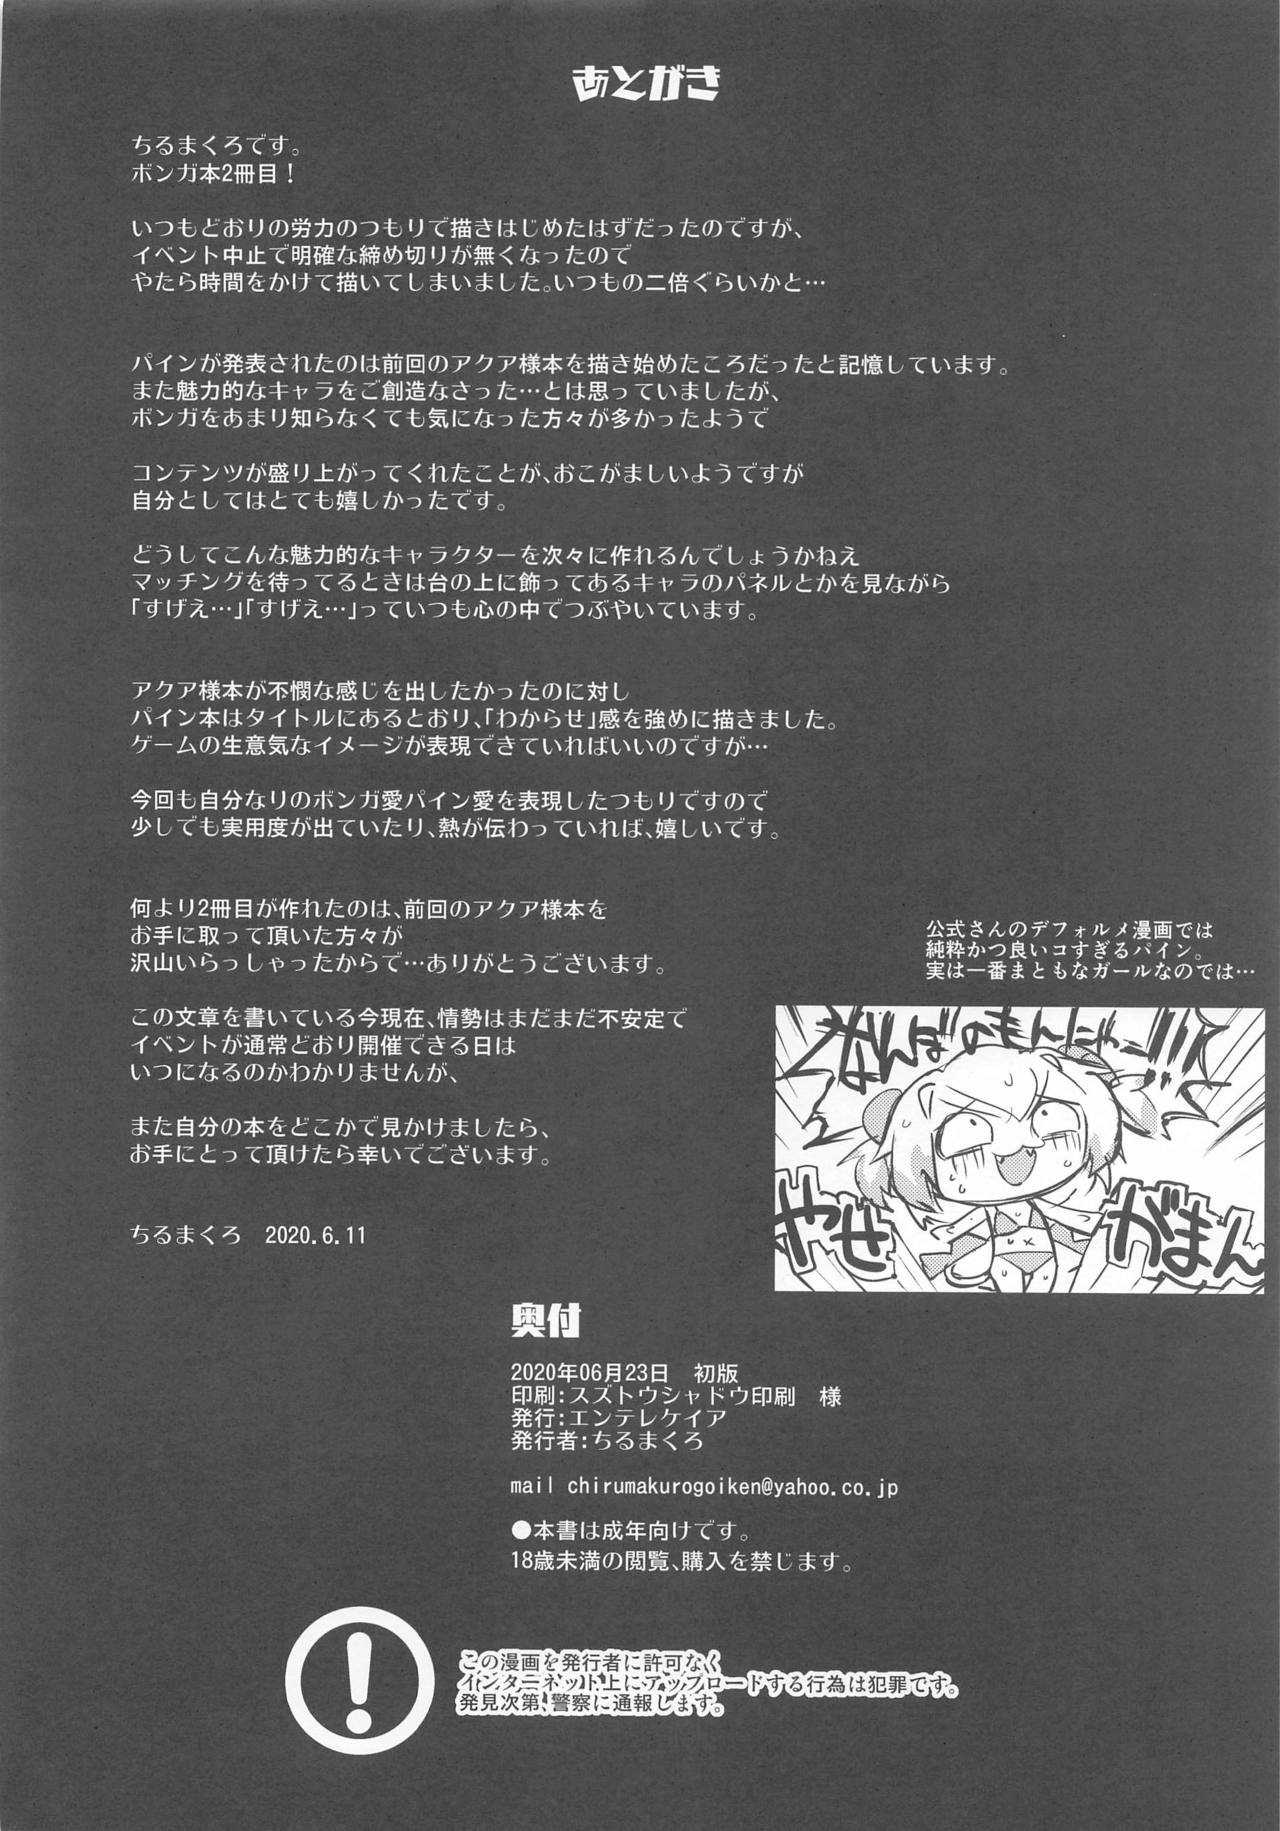 あとがき
ちるまくろです。
ボンガ本2冊目！
いつもどおりの労力のつもりで描きはじめたはずだったのですが、
イベント中止で明確な締め切りが無くなったので
やたら時間をかけて描いてしまいました。いつもの二倍ぐらいかと…
パインが発表されたのは前回のアクア様本を描き始めたころだったと記憶しています。
また魅力的なキャラをご創造なさった…とは思っていましたが、
ボンガをあまり知らなくても気になった方々が多かったようで
コンテンツが盛り上がってくれたことが、おこがましいようですが
自分としてはとても嬉しかったです。
どうしてこんな魅力的なキャラクターを次々に作れるんでしょうかねえ
マッチングを待ってるときは台の上に飾ってあるキャラのパネルとかを見ながら
「すげえ…」「すげえ…」っていつも心の中でつぶやいています。
アクア様本が不憫な感じを出したかったのに対し
パイン本はタイトルにあるとおり、「わからせ」感を強めに描きました。
ゲームの生意気なイメージが表現できていればいいのですが…
今回も自分なりのボンガ愛パイン愛を表現したつもりですので
少しでも実用度が出ていたり、熱が伝わっていれば、嬉しいです。
何より2冊目が作れたのは、前回のアクア様本を
お手に取って頂いた方々が
沢山いらっしゃったからで…ありがとうございます。
この文章を書いている今現在、情勢はまだまだ不安定で
イベントが通常どおり開催できる日は
いつになるのかわかりませんが、
また自分の本をどこかで見かけましたら、
お手にとって頂けたら幸いでございます。
ちるまくろ　2020.6.11
公式さんのデフォルメ漫画では
純粋かつ良いコすぎるパイン。
実は一番まともなガールなのでは…
なんばのもんにゃこ!!!
やせ
がまん
奥付
2020年06月23日　初版
印刷:スズトウシャドウ印刷　様
発行:エンテレケイア
発行者:ちるまくろ
mail chirumakurogoiken@yahoo.co.jp
●本書は成年向けです。
18歳未満の閲覧、購入を禁じます。
この漫画を発行者に許可なく
インターネット上にアップロードする行為は犯罪です。
発見次第、警察に通報します。